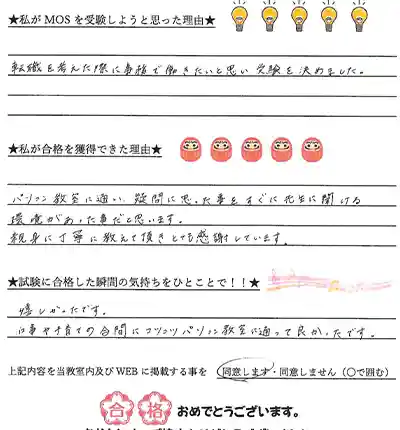 ★私が MOS を受験しようと思った理由★
転職を考えた際に事務で働きたいと思い受験を決めました。
★私が合格を獲得できた理由★
パソコン教室に通い、疑問に思った事をすぐに先生に聞ける
環境があった事だと思います。
親身に丁寧に教えて頂きとても感謝しています。
★試験に合格した瞬間の気持ちをひとことで！！★
嬉しかったです。
仕事や子育ての合間にコツコツパソコン教室に通って良かったです。
上記内容を当教室内及びWEBに掲載する事を 同意します・同意しません（〇で囲む）
合格 おめでとうございます。